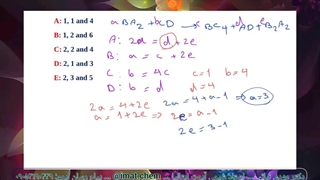 A: 1, 1 and 4
B: 1, 2 and 6
C: 2, 2 and 4
D: 2, 1 and 3
E: 2, 3 and 5
aBA₂ + bCD → BC₄ + dAD + eB₂A₂
A: 2a = d + 2e
B: a = c + 2e
C: b = 4c c=1 b=4
D: b = d d=4
2a = 4+2e 2a = 4+a-1 ⇒ a=3
a = 1+2e ⇒ 2e = a-1
2e = 3-1
@imat.chem